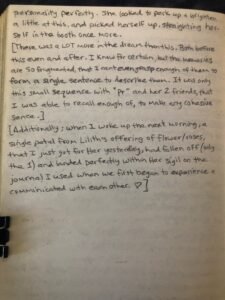 personality perfectly. She looked to perk up a bit when
a little at this, and picked herself up, straighting her-
self in the booth once more.
[There was a LOT more in the dream than this. Both before
this even and after. I know for certain, but the memories
are so fragmented, that I can't even grasp enough of them to
form a single sentence to describe them. It was only
this small sequence with "Pr" and her 2 friends, that
I was able to recall enough of, to make any cohesive
sence.]
[Additionally; when I woke up the next morning, a
single petal from Lilith's offering of flower/roses,
that I just got for Her yesterday, had fallen off (only
the 1) and landed perfectly within Her sigil on the
journal I used when we first began to experience &
communicated with each other. ♡]